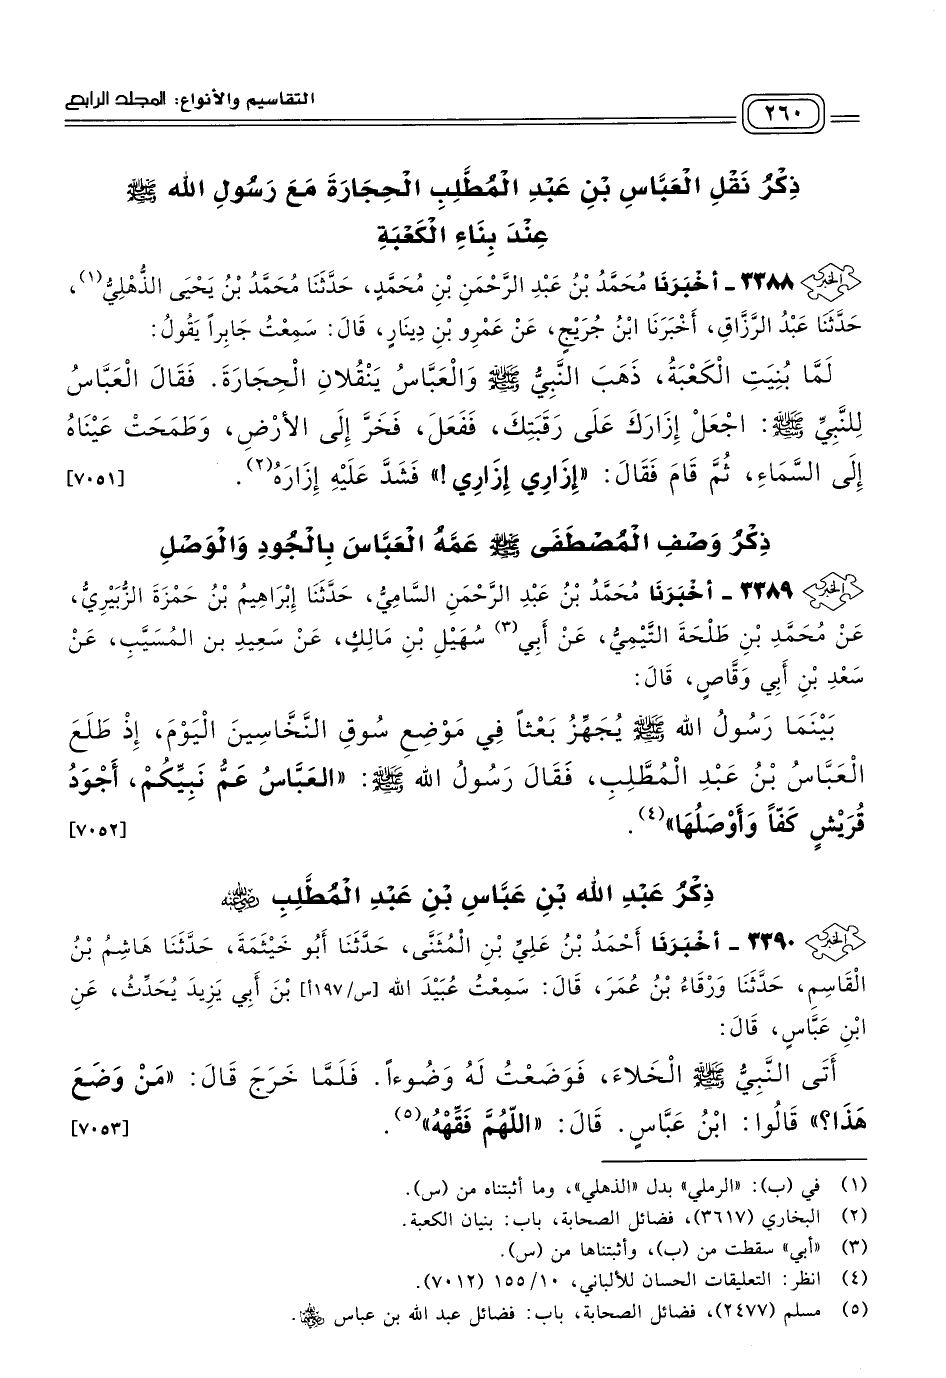 التقاسيم والأنواع: المجلد الرابع
٢٦٠
ذِكْرُ نَقْلِ الْعَبَّاسِ بْنِ عَبْدِ الْمُطَّلِبِ الْحِجَارَةَ مَعَ رَسُولِ الله ﷺ
عِنْدَ بِنَاءِ الْكَعْبَةِ
٣٣٨٨ ـ أخْبَرَنَا مُحَمَّدُ بْنُ عَبْدِ الرَّحْمَنِ بْنِ مُحَمَّدٍ، حَدَّثَنَا مُحَمَّدُ بْنُ يَحْيَى الذُّهْلِيُّ(١)،
حَدَّثَنَا عَبْدُ الرَّزَّاقِ، أَخْبَرَنَا ابْنُ جُرَيْجٍ، عَنْ عَمْرِو بْنِ دِينَارٍ، قَالَ: سَمِعْتُ جَابِراً يَقُولُ:
لَمَّا بُنِيَتِ الْكَعْبَةُ، ذَهَبَ النَّبِيُّ ﷺ وَالْعَبَّاسُ يَنْقُلَانِ الْحِجَارَةَ. فَقَالَ الْعَبَّاسُ
لِلنَّبِيِّ ﷺ: اجْعَلْ إِزَارَكَ عَلَى رَقَبَتِكَ، فَفَعَلَ، فَخَرَّ إِلَى الأَرْضِ، وَطَمَحَتْ عَيْنَاهُ
إِلَى السَّمَاءِ، ثُمَّ قَامَ فَقَالَ: «إِزَارِي إِزَارِي!» فَشَدَّ عَلَيْهِ إِزَارَهُ(٢). [٧٠٥١]
ذِكْرُ وَصْفِ الْمُصْطَفَى ﷺ عَمَّهُ الْعَبَّاسَ بِالْجُودِ وَالْوَصْلِ
٣٣٨٩ ـ أخْبَرَنَا مُحَمَّدُ بْنُ عَبْدِ الرَّحْمَنِ السَّامِيُّ، حَدَّثَنَا إِبْرَاهِيمُ بْنُ حَمْزَةَ الزُّبَيْرِيُّ،
عَنْ مُحَمَّدِ بْنِ طَلْحَةَ التَّيْمِيُّ، عَنْ أَبِي(٣) سُهَيْلِ بْنِ مَالِكٍ، عَنْ سَعِيدِ بن المُسَيَّبِ، عَنْ
سَعْدِ بْنِ أَبِي وَقَّاصٍ، قَالَ:
بَيْنَمَا رَسُولُ الله ﷺ يُجَهِّزُ بَعْثاً فِي مَوْضِعِ سُوقِ النَّخَّاسِينَ الْيَوْمَ، إِذْ طَلَعَ
الْعَبَّاسُ بْنُ عَبْدِ الْمُطَّلِبِ، فَقَالَ رَسُولُ الله ﷺ: «العَبَّاسُ عَمُّ نَبِيِّكُمْ، أَجْوَدُ
قُرَيْشٍ كَفّاً وَأَوْصَلُهَا»(٤). [٧٠٥٢]
ذِكْرُ عَبْدِ الله بْنِ عَبَّاسِ بْنِ عَبْدِ الْمُطَّلِبِ رضي الله عنه
٣٣٩٠ ـ أخْبَرَنَا أَحْمَدُ بْنُ عَلِيِّ بْنِ الْمُثَنَّى، حَدَّثَنَا أَبُو خَيْثَمَةَ، حَدَّثَنَا هَاشِمُ بْنُ
الْقَاسِمِ، حَدَّثَنَا وَرْقَاءُ بْنُ عُمَرَ، قَالَ: سَمِعْتُ عُبَيْدَ الله [س/١٩٧أ] بْنَ أَبِي يَزِيدَ يُحَدِّثُ، عَنِ
ابْنِ عَبَّاسٍ، قَالَ:
أَتَى النَّبِيُّ ﷺ الْخَلَاءَ، فَوَضَعْتُ لَهُ وَضُوءاً. فَلَمَّا خَرَجَ قَالَ: «مَنْ وَضَعَ
هَذَا؟» قَالُوا: ابْنُ عَبَّاسٍ. قَالَ: «اللّهُمَّ فَقِّهْهُ»(٥). [٧٠٥٣]
(١) في (ب): «الرملي» بدل «الذهلي»، وما أثبتناه من (س).
(٢) البخاري (٣٦١٧)، فضائل الصحابة، باب: بنيان الكعبة.
(٣) «أبي» سقطت من (ب)، وأثبتناها من (س).
(٤) انظر: التعليقات الحسان للألباني، ١٠/ ١٥٥ (٧٠١٢).
(٥) مسلم (٢٤٧٧)، فضائل الصحابة، باب: فضائل عبد الله بن عباس رضي الله عنه.